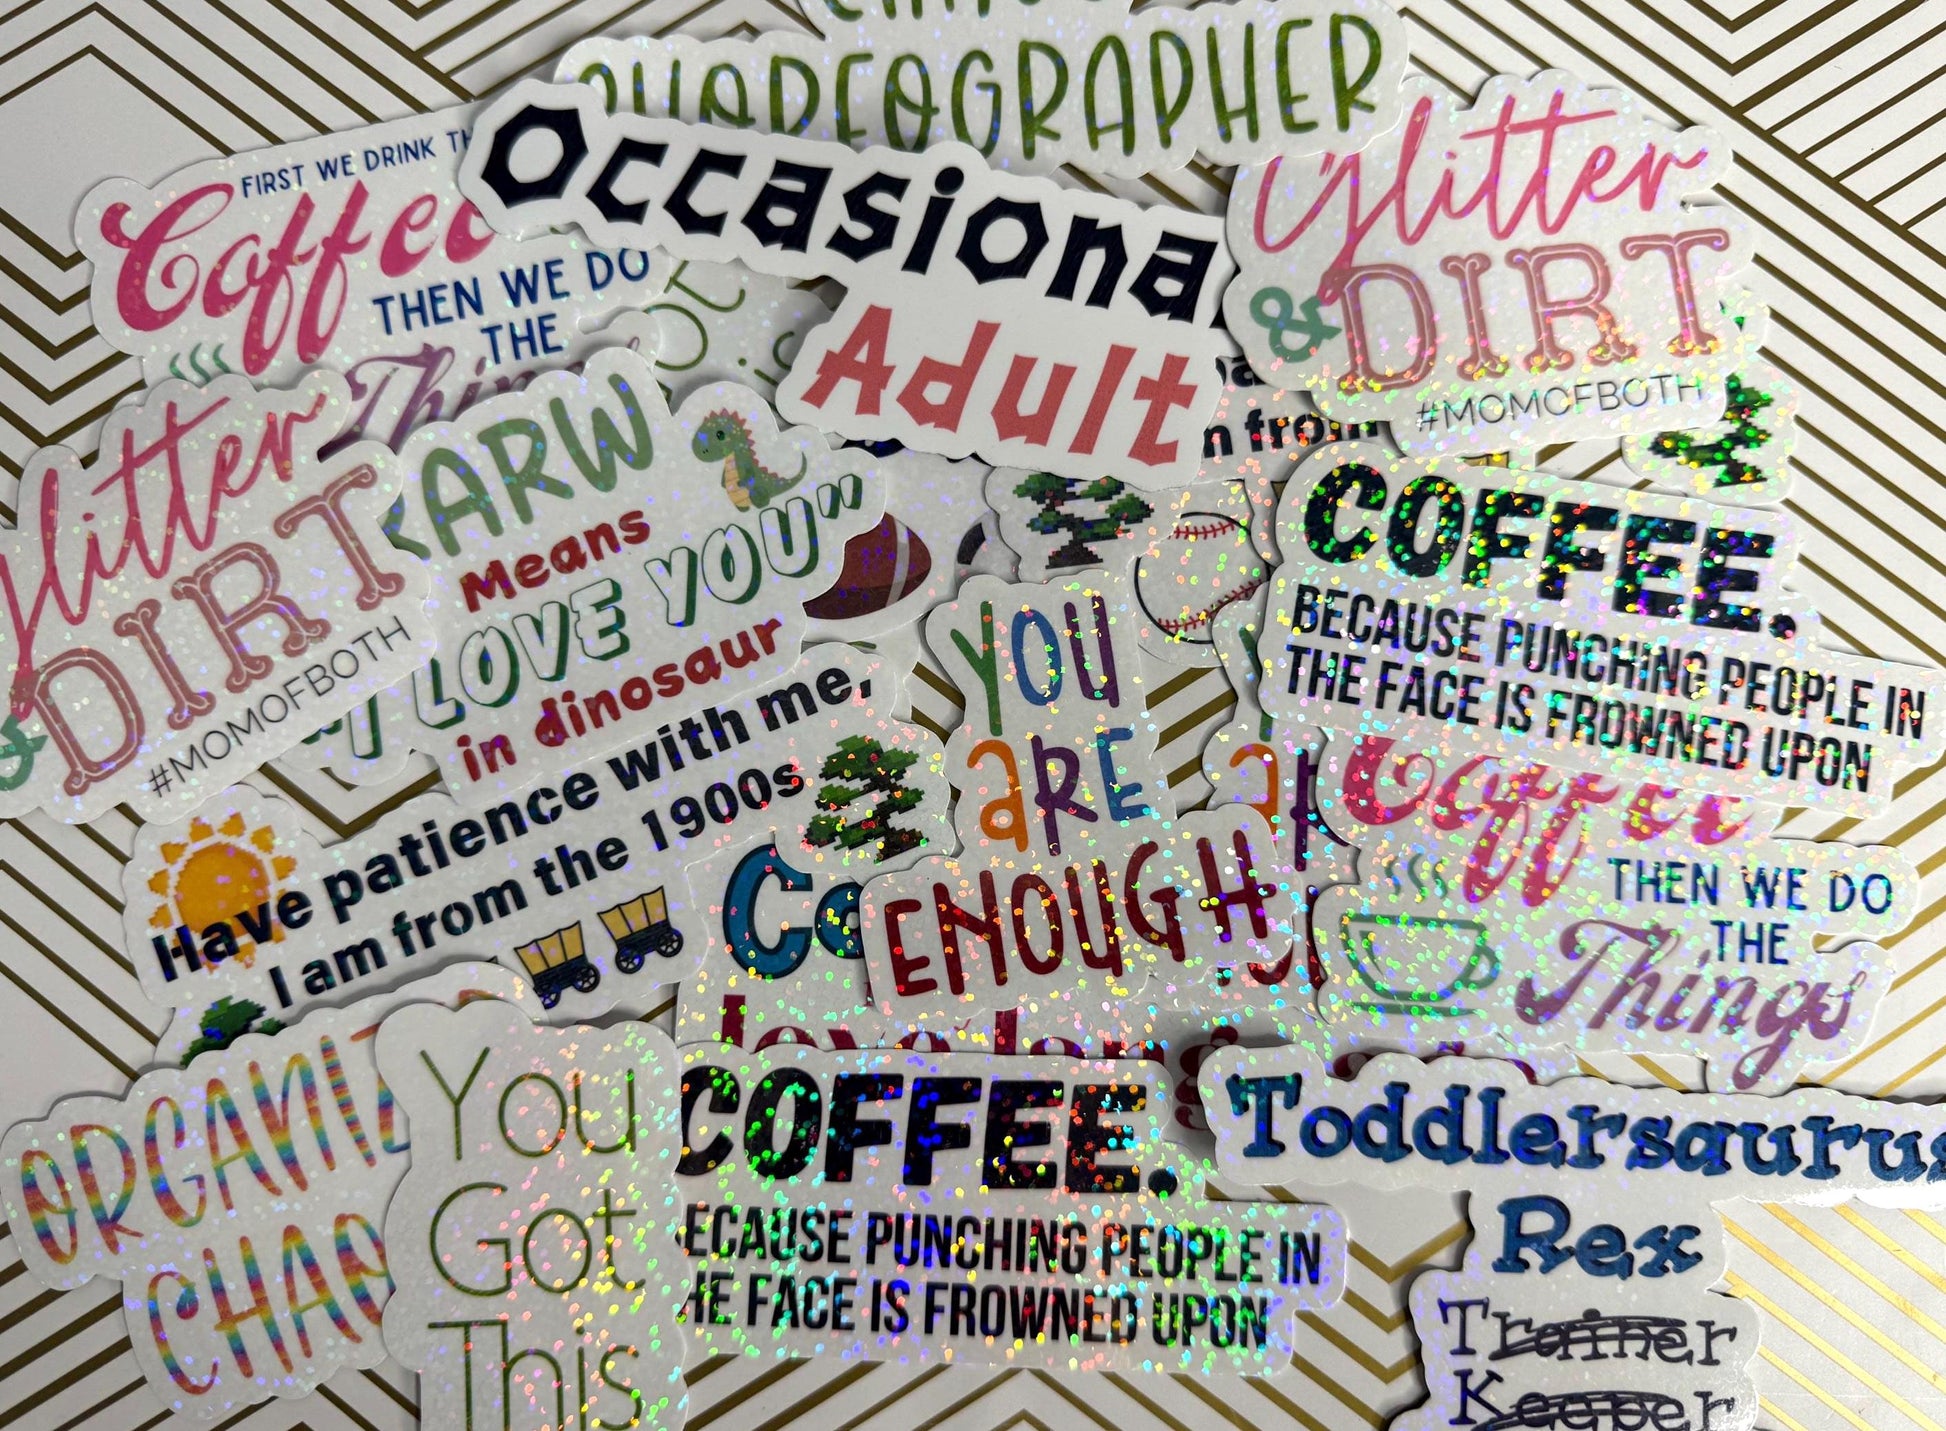 CHOREOGRAPHER
Occasional
Adult
FIRST WE DRINK
Coffee
THEN WE DO
THE
Things
Glitter
& DIRT
#MOMOFBOTH
Glitter
& DIRT
#MOMOFBOTH
RARW
Means
"I LOVE YOU"
in dinosaur
n from
COFFEE.
BECAUSE PUNCHING PEOPLE IN
THE FACE IS FROWNED UPON
YOU
aRE
ENOUGH
Have patience with me,
I am from the 1900s
Coffee
THEN WE DO
THE
Things
Co
ORGANIZ
CHAO
You
Got
This
COFFEE.
ECAUSE PUNCHING PEOPLE IN
HE FACE IS FROWNED UPON
Toddlersaurus
Rex
Trainer
Keeper